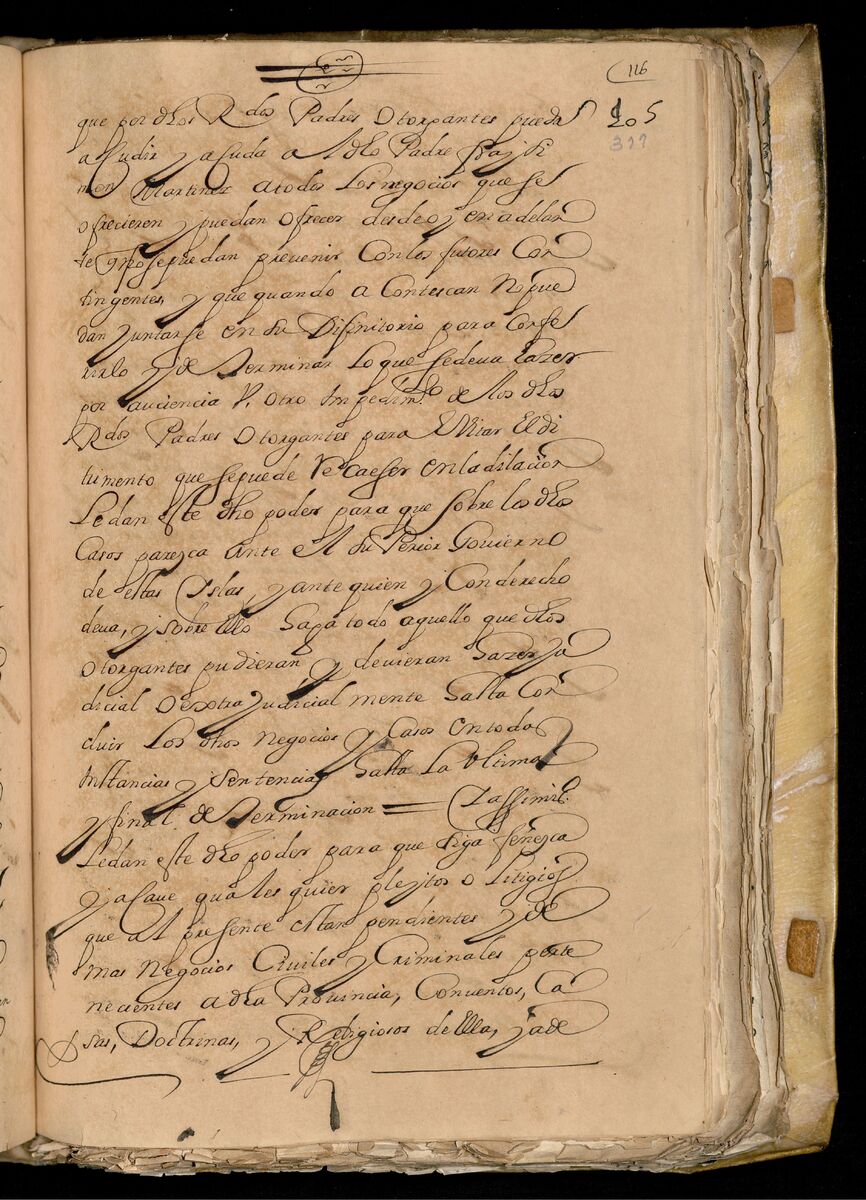 116
205
399
que por dhos Rdos Padres Otorgantes pueda
acudir y acuda a el dho Padre fray Si
mon Martinez a todos los negocios que se
ofrecieren y puedan ofrecer desde oy en adelan
te q̃ no se puedan prevenir con los futores Con
tingentes, y que quando acontescan No pue
dan juntarse en su Difinitorio para Confe
rirlo y determinar lo que se deva hazer
por auciencia V. otro Impedimto de los dhos
Rdos Padres Otorgantes para evitar El di
trimento que se puede Recaeser en la dilacion
Le dan este dho poder para que sobre los dhos
Casos paresca ante el Superior Govierno
de estas Islas, y ante quien y Con derecho
deva, y sobre ello haga todo aquello que dhos
Otorgantes pudieran y devieran hazer ju
dicial o extrajudicial mente hasta Con
cluir los dhos negocios y Casos en todas
Instancias y sentencias hasta la Vltima
y final determinacion = Y assimismo
Le dan este dho poder para que siga fenesca
y acave quales quier pleytos o Litigios
que al presente estan pendientes y de
mas Negocios Civiles y Criminales perte
necientes a dha Provincia, Conventos, Ca
sas, Doctrinas, y Religiosos de ella, y a de